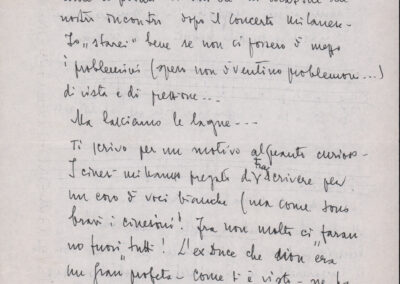 nostri incontri dopo il concerto milanese.
Io „starei" bene se non ci fossero di mezzo
i problemini (spero non diventino problemoni...)
di vista e di pressione...
Ma lasciamo le lagne---
Ti scrivo per un motivo alquanto curioso-
I cinesi mi hanno pregato di trascrivere per
un coro di voci bianche (ma come sono
bravi i cinesini! Fra non molto ci „faran
no fuori" tutti! L'ex Duce che era
un „gran" profeta- come ti è visto- ne